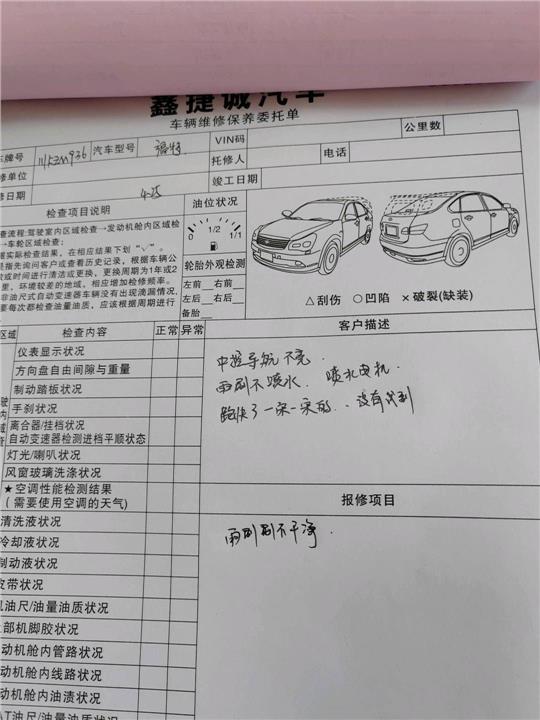 鑫捷诚汽车
车辆维修保养委托单
公里数
车牌号 川R5ZM936 汽车型号 福特 VIN码
修单位 托修人 电话
修日期 4-25 竣工日期
检查项目说明 油位状况
0 1/2 1/1
查流程:驾驶室内区域检查→发动机舱内区域检
→车轮区域检查;
据实际检查结果,在相应结果下划“√”。
是指先询问客户或查看历史记录,根据车辆公
或时间进行清洁或更换,更换周期为1年或2
里,环境较差的地域,相应增加检修频率。
非油尺式自动变速器车辆没有出现滴漏情况,
要每次都检查油量油质,应该根据周期进行
轮胎外观检测
左前 右前
左后 右后
备胎
△刮伤 ○凹陷 ×破裂(缺装)
区域 检查内容 正常 异常 客户描述
仪表显示状况
方向盘自由间隙与重量
制动踏板状况
手刹状况
离合器/挂档状况
自动变速器检测进档平顺状态
灯光/喇叭状况
风窗玻璃洗涤状况
★空调性能检测结果
(需要使用空调的天气)
驶室内检查
中控导航不亮
雨刷不喷水. 喷水电机
跑快了一耸一耸的. 没有找到
报修项目
雨刷刮不干净.
清洗液状况
冷却液状况
制动液状况
皮带状况
机油尺/油量油质状况
上部机脚胶状况
动机舱内管路状况
动机舱内线路状况
动机舱内油渍状况
AT油尺/油量油质状况